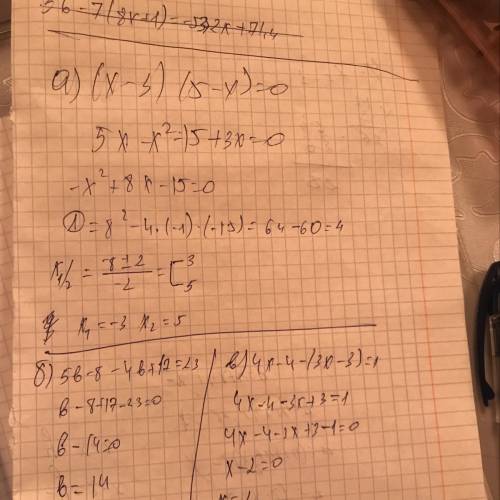 56 - 7(8x+1) = -532x + 7144
а) (x-3) (5-x)=0
5x - x²=15+3x=0
-x²+8x-15=0
D=8²-4·(-1)·(-15)= 64-60=4
x1/2 = -8±2/-2 = [ 3 5
x₁=-3 x₂=5
б) 5b-8-4b+17=23
b-8+17-23=0
b-14=0
b=14
в) 4x-4-(3x-3)=1
4x-4-3x+3=1
4x-4-3x+3-1=0
x-2=0